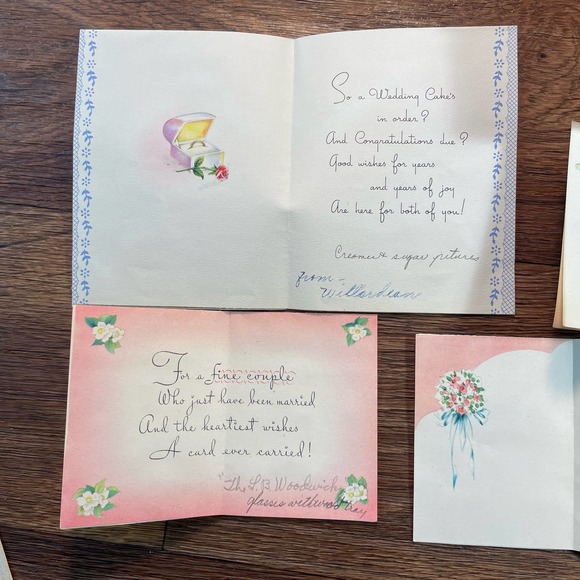 So a Wedding Cake's
in order?
And Congratulations due?
Good wishes for years
and years of joy
Are here for both of you!
Creamer & sugar
from-
Willardean
For a fine couple
Who just have been married
And the heartiest wishes
A card ever carried!
"The L.B Woodwick
glasses with